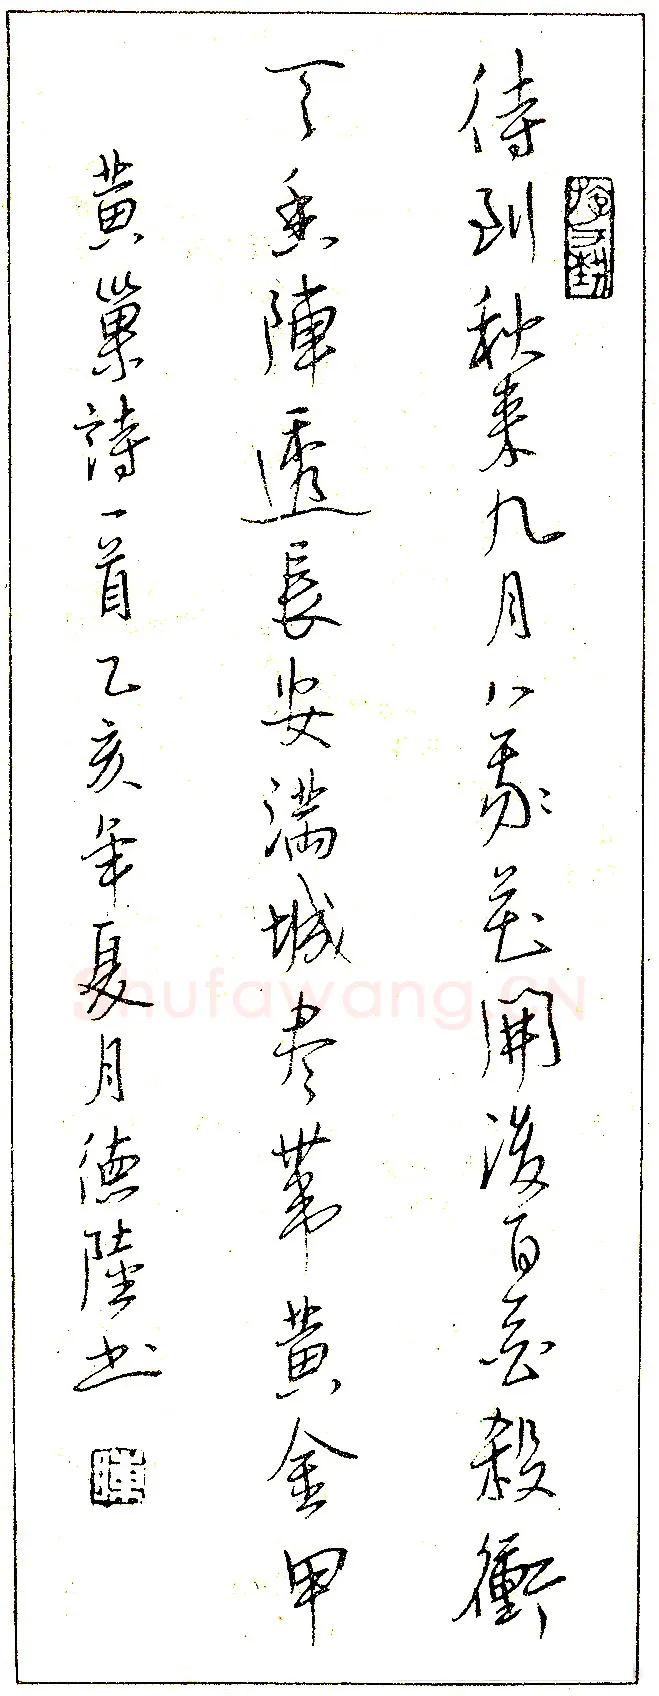 待到秋来九月八我花開後百花殺衝
天香陣透長安满城尽帶黄金甲
黄巢詩一首乙亥年夏月德陸书
Shufawang.CN